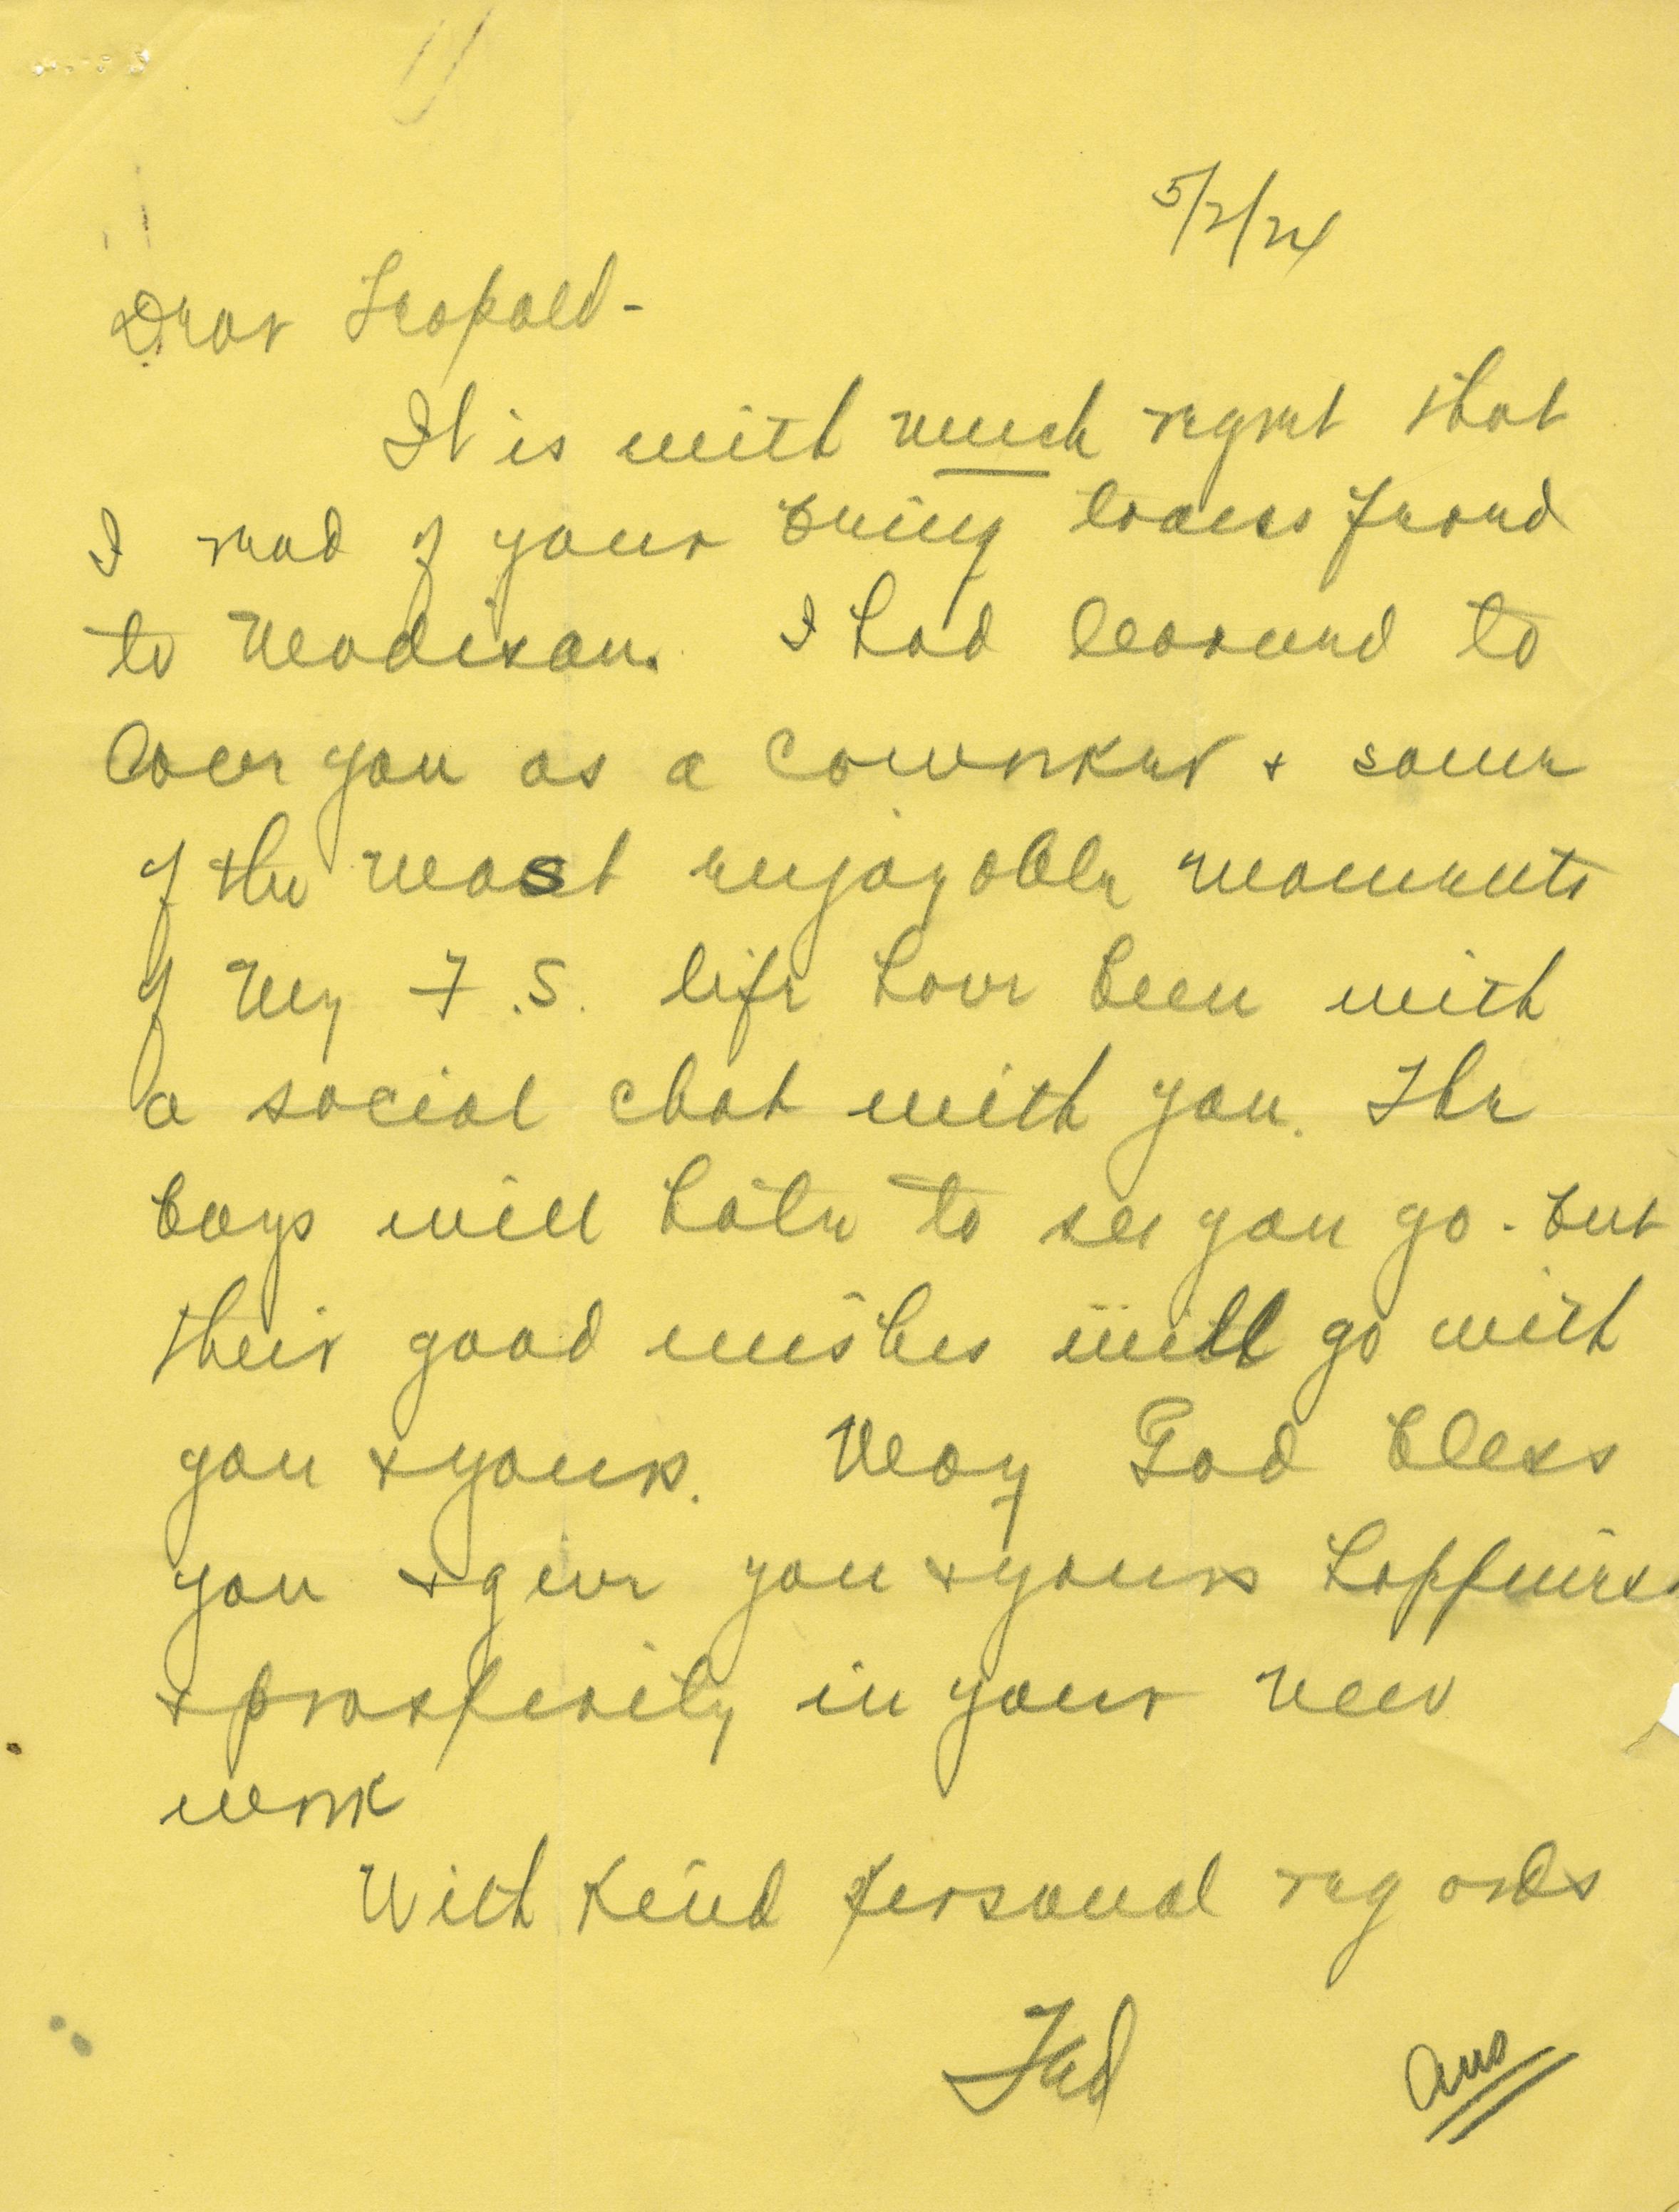 5/2/24
Dear Leopold-
It is with much regret that
I read of your being transferred
to Madison. I had learned to
love you as a coworker + some
of the most enjoyable moments
of my F.S. life have been with
a social chat with you. The
boys will hate to see you go - but
their good wishes will go with
you + yours. May God bless
you + give you + yours happiness
+ prosperity in your new
work
With kind personal regards
Ted
Ans